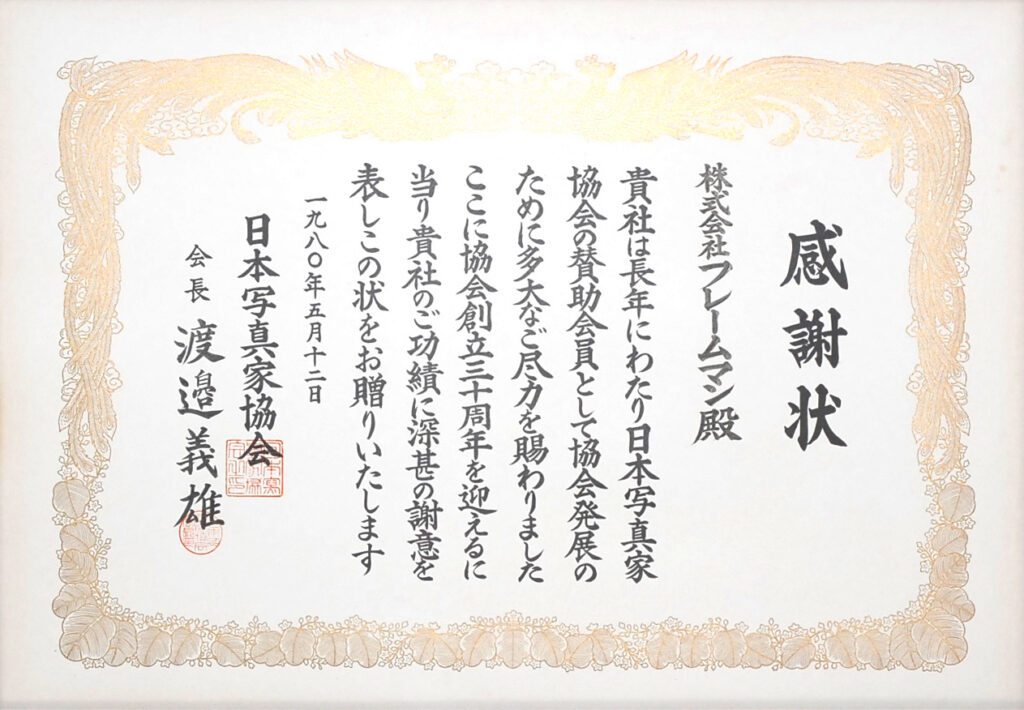 感謝状
株式会社フレームマン殿
貴社は長年にわたり日本写真家
協会の賛助会員として協会発展の
ために多大なご尽力を賜わりました
ここに協会創立三十周年を迎えるに
当り貴社のご功績に深甚の謝意を
表しこの状をお贈りいたします
一九八〇年五月十二日
日本写真家協会
会長 渡邉義雄